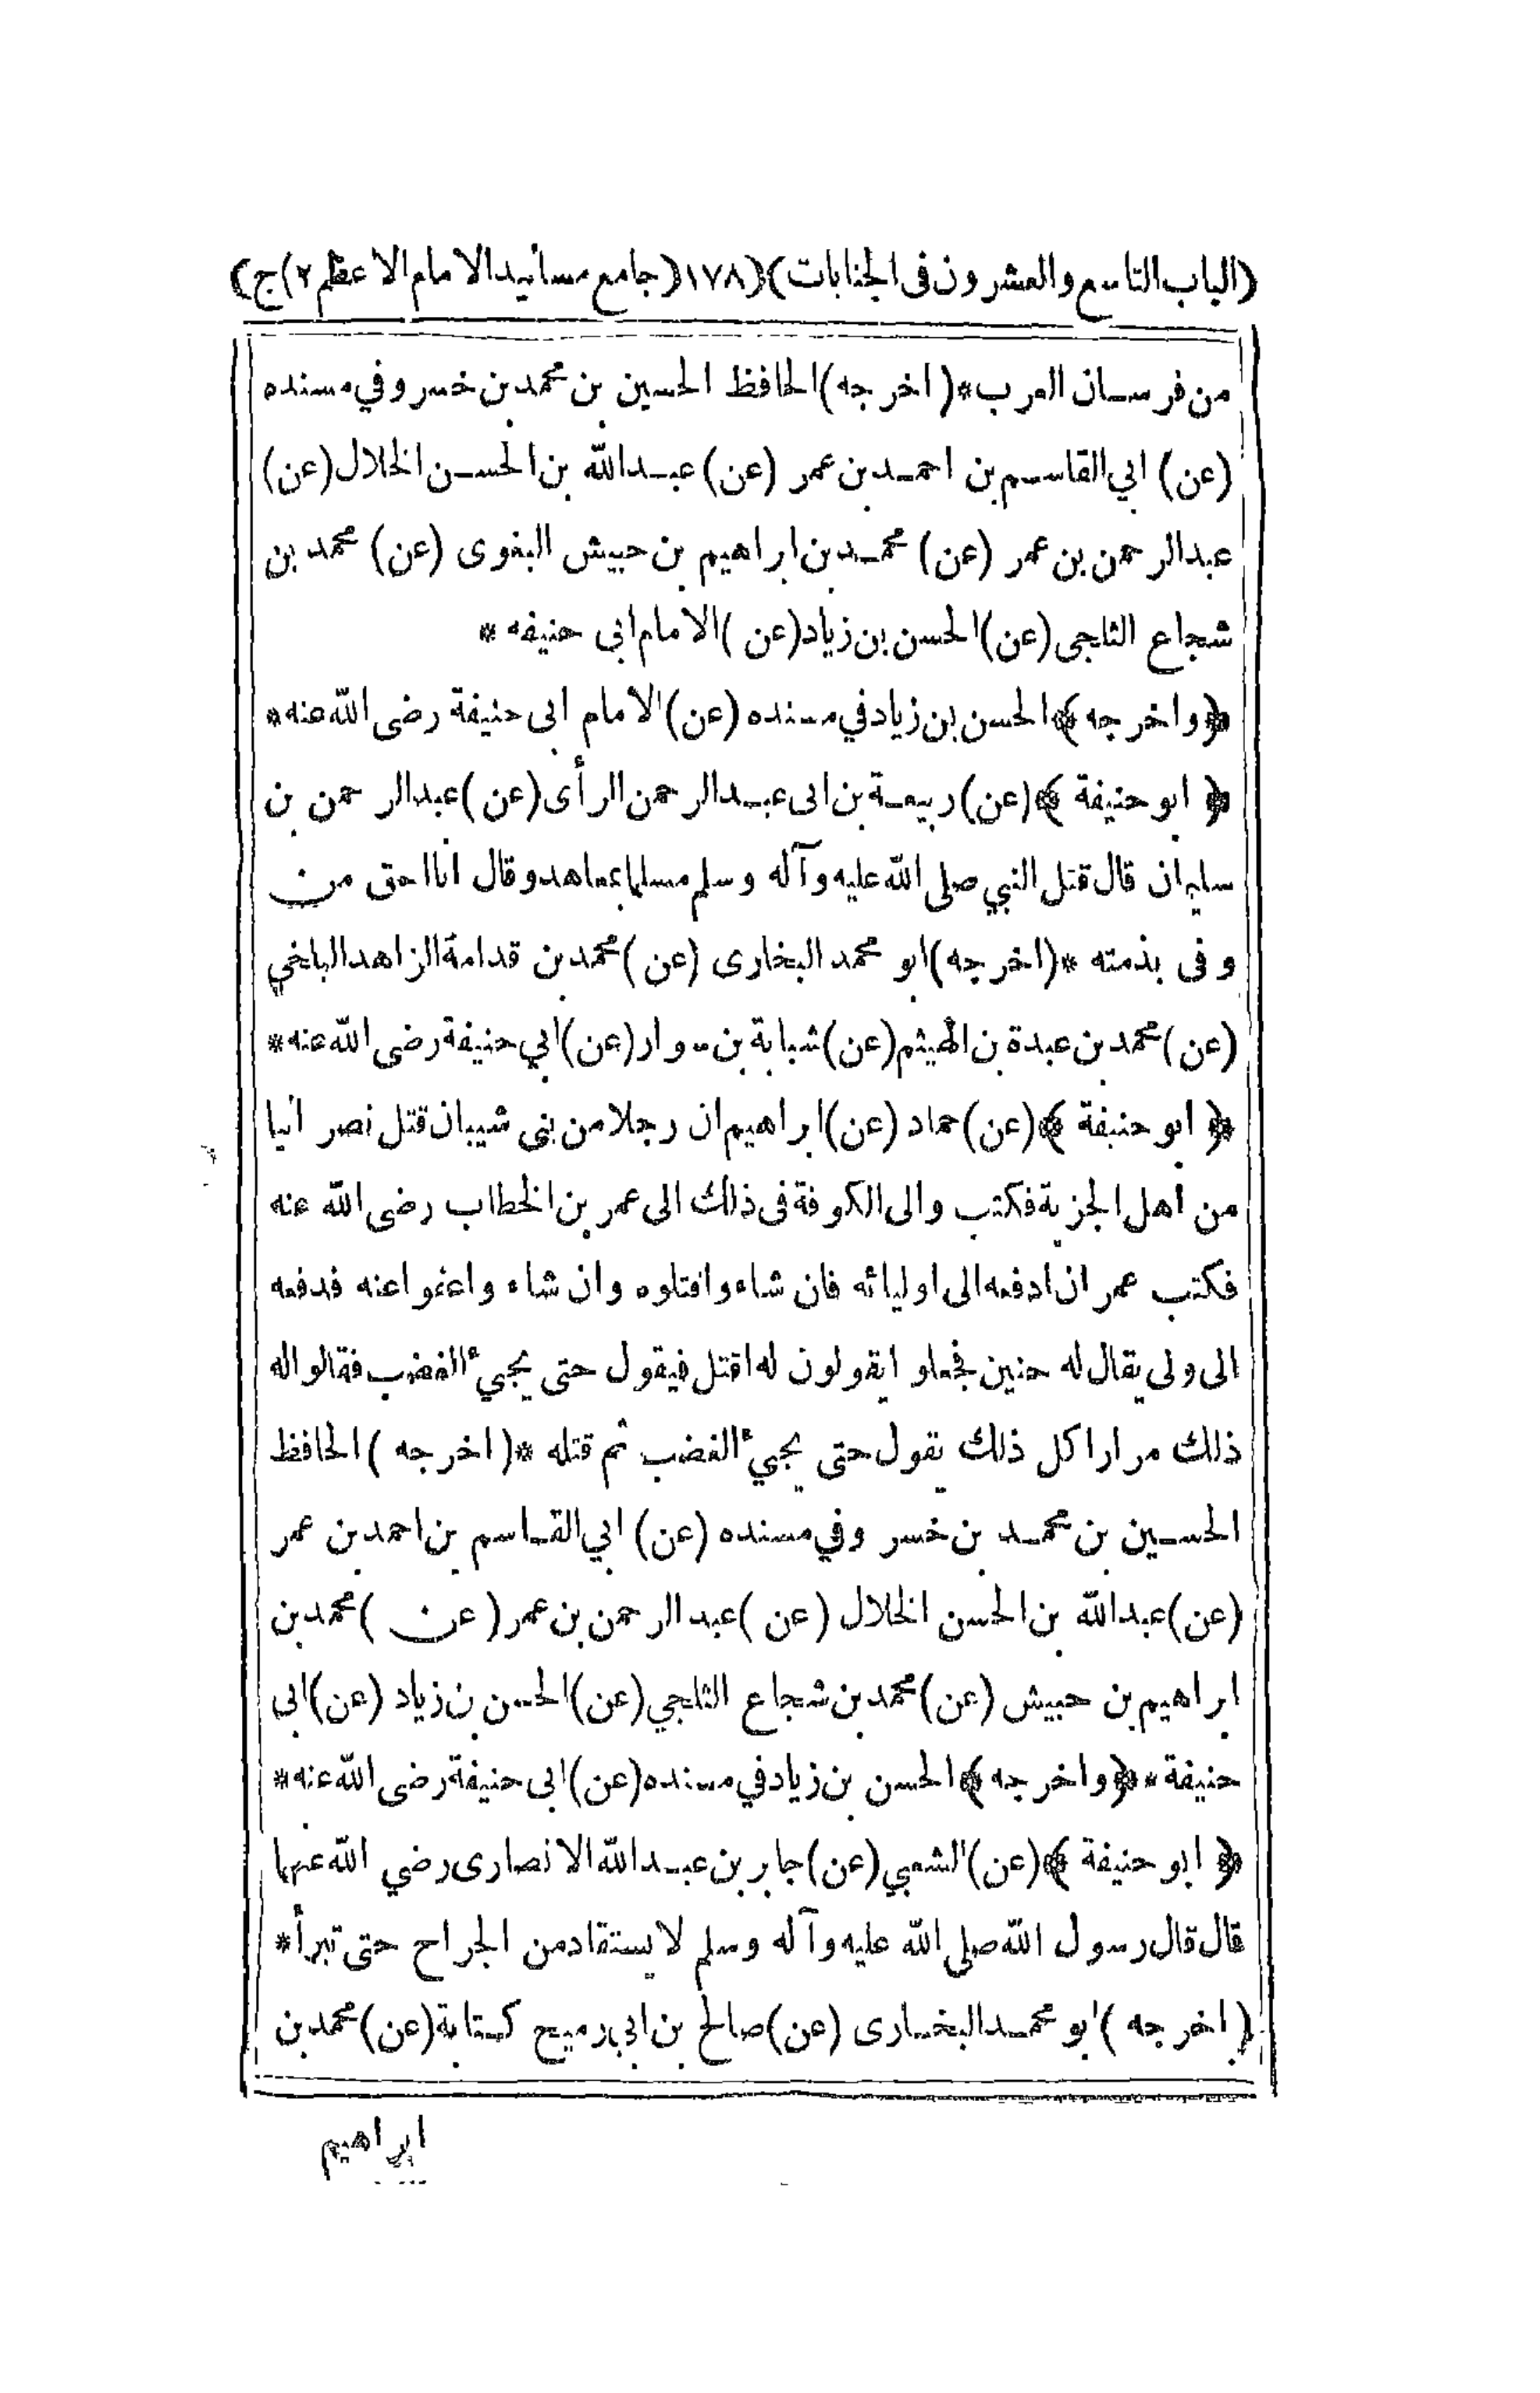 (الباب التاسع والعشرون فى الجنايات) (١٧٨) (جامع مسانيد الامام الاعظم ٢) ج)
من فرسان العرب* (اخرجه) الحافظ الحسين بن محمد بن خسرو في مسنده
(عن) ابي القاسم بن احمد بن عمر (عن) عبد الله بن الحسن الخلال (عن)
عبد الرحمن بن عمر (عن) محمد بن ابراهيم بن حبيش البغوى (عن) محمد بن
شجاع الثلجى (عن) الحسن بن زياد (عن) الامام ابى حنيفه *
﴿واخرجه﴾ الحسن بن زياد في مسنده (عن) الامام ابى حنيفة رضى الله عنه*
﴿ابو حنيفة﴾ (عن) ربيعة بن ابى عبد الرحمن الرأى (عن) عبد الرحمن بن
سليمان قال قتل النبي صلى الله عليه وآله وسلم مسلما بمعاهد وقال انا احق من
وفى بذمته * (اخرجه) ابو محمد البخارى (عن) محمد بن قدامة الزاهد البلخي
(عن) محمد بن عبدة بن الهيثم (عن) شبابة بن سوار (عن) ابي حنيفة رضى الله عنه*
﴿ابو حنيفة﴾ (عن) حماد (عن) ابراهيم ان رجلا من بنى شيبان قتل نصرانيا
من أهل الجزية فكتب والى الكوفة فى ذلك الى عمر بن الخطاب رضى الله عنه
فكتب عمر ان ادفعه الى اوليائه فان شاءوا قتلوه وان شاءوا عفوا عنه فدفعه
الى ولى يقال له حنين فجعلوا يقولون له اقتل فيقول حتى يجيئ الغضب فقالوا له
ذلك مرارا كل ذلك يقول حتى يجيئ الغضب ثم قتله * (اخرجه) الحافظ
الحسين بن محمد بن خسرو في مسنده (عن) ابي القاسم بن احمد بن عمر
(عن) عبد الله بن الحسن الخلال (عن) عبد الرحمن بن عمر (عن) محمد بن
ابراهيم بن حبيش (عن) محمد بن شجاع الثلجي (عن) الحسن بن زياد (عن) ابى
حنيفة * ﴿واخرجه﴾ الحسن بن زياد في مسنده (عن) ابى حنيفة رضى الله عنه*
﴿ابو حنيفة﴾ (عن) الشعبي (عن) جابر بن عبد الله الانصارى رضي الله عنهما
قال قال رسول الله صلى الله عليه وآله وسلم لا يستقاد من الجراح حتى تبرأ*
(اخرجه) ابو محمد البخارى (عن) صالح بن ابي رميح كتابة (عن) محمد بن
ابراهيم